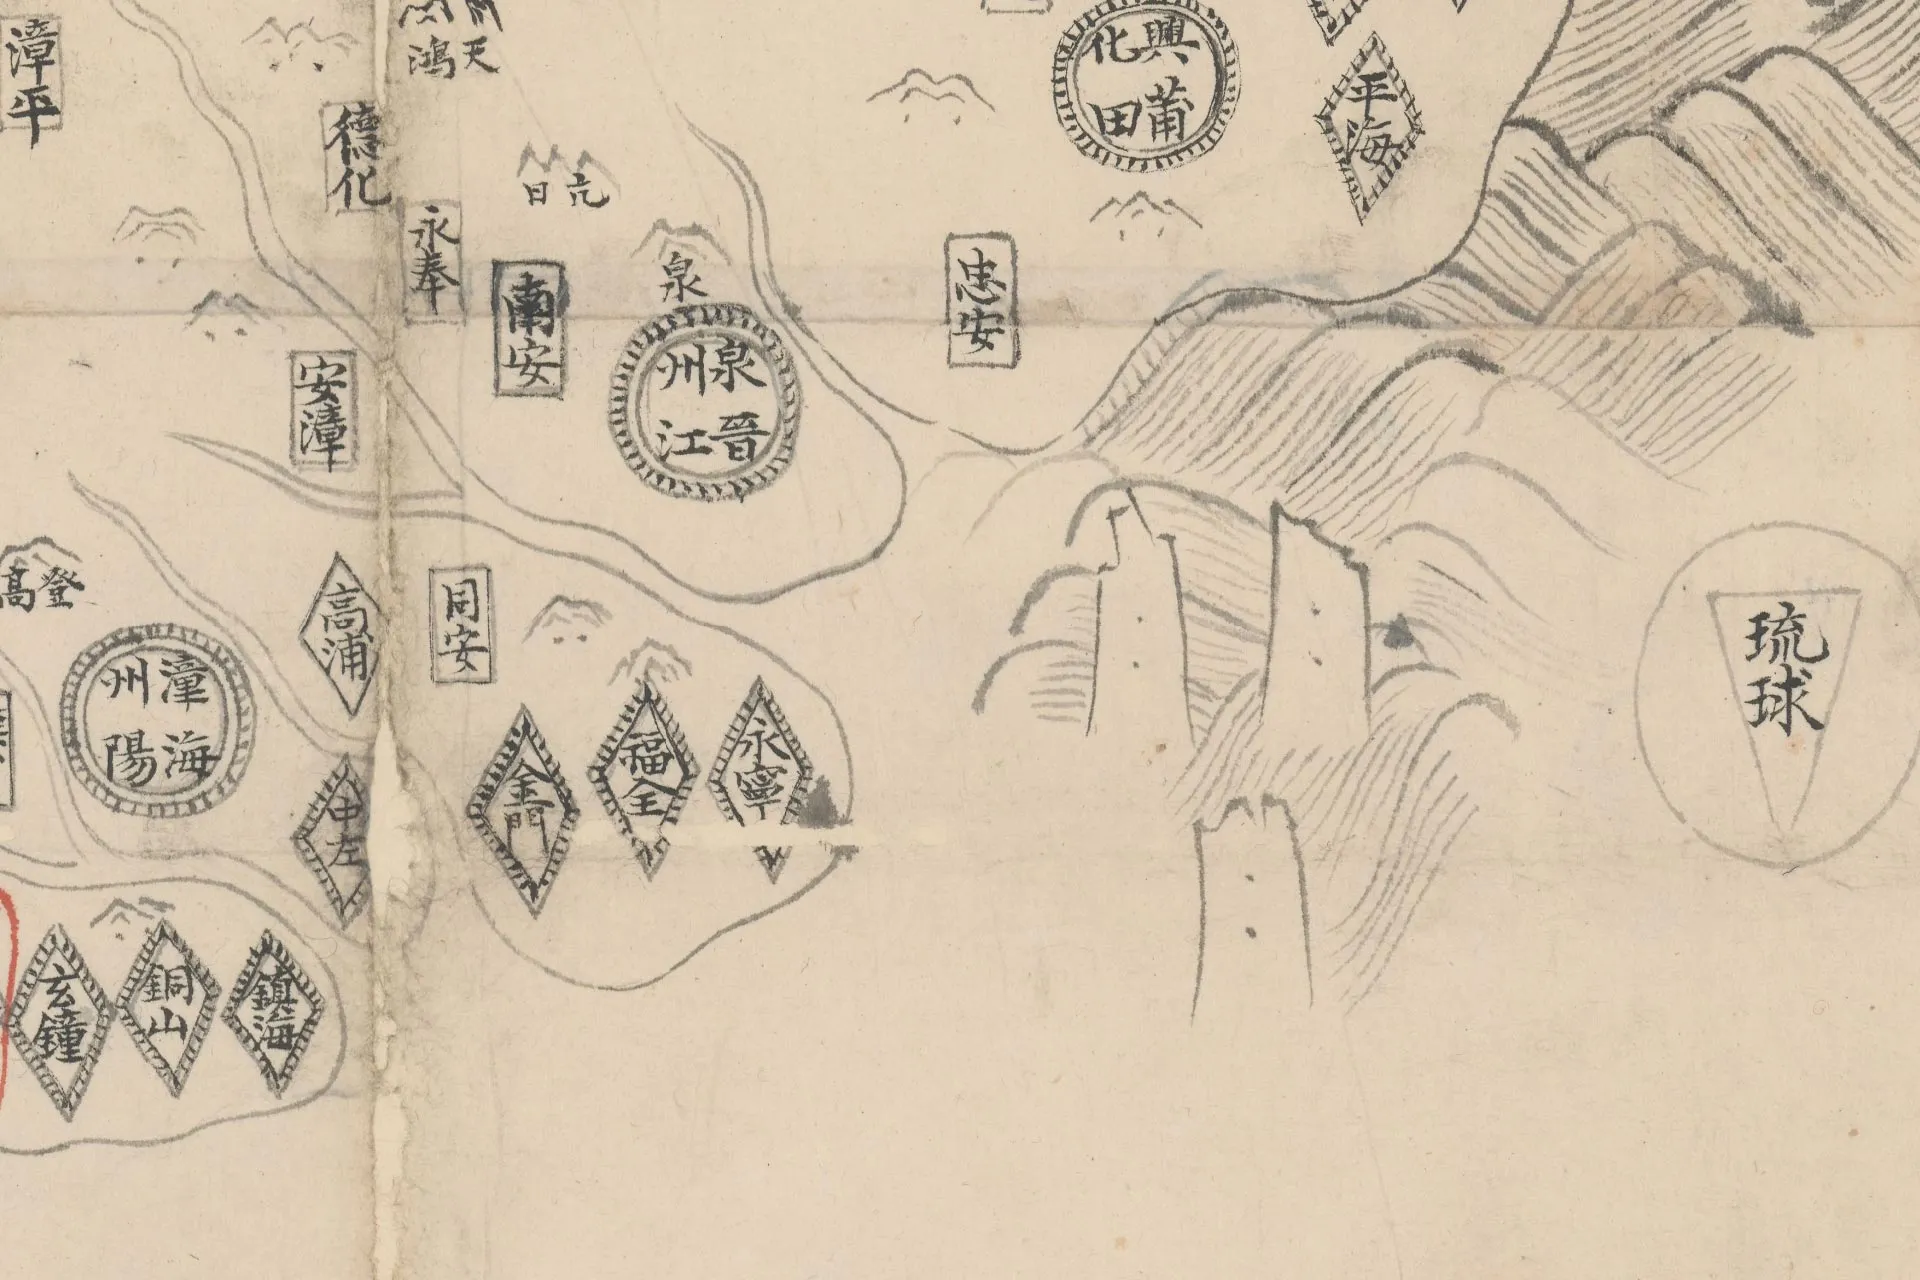 漳平
德化
鴻
天
永奉
元日
泉
南安
泉州
晉江
忠安
興化
莆田
平海
安漳
登高
漳州
海陽
高浦
同安
中左
金門
福全
永寧
玄鐘
銅山
鎮海
琉球